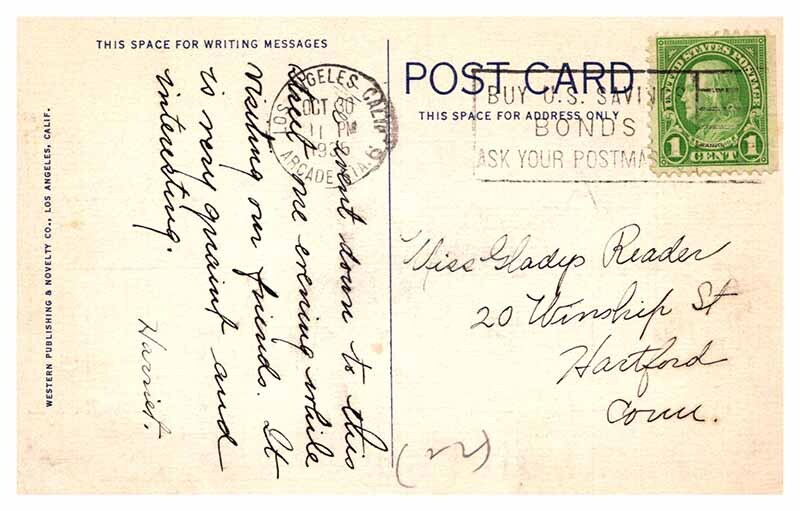 THIS SPACE FOR WRITING MESSAGES
We went down to this
street one evening while
visiting our friends. It
is very quaint and
interesting.
Harriet.
WESTERN PUBLISHING & NOVELTY CO., LOS ANGELES, CALIF.
LOS ANGELES, CALIF.
OCT 30
11 PM
ARCADE STA.
POST CARD
THIS SPACE FOR ADDRESS ONLY
BUY U.S. SAVINGS
BONDS
ASK YOUR POSTMAS
UNITED STATES POSTAGE
FRANKLIN
1 CENT 1
Miss Gladys Reader
20 Winship St
Hartford
Conn.